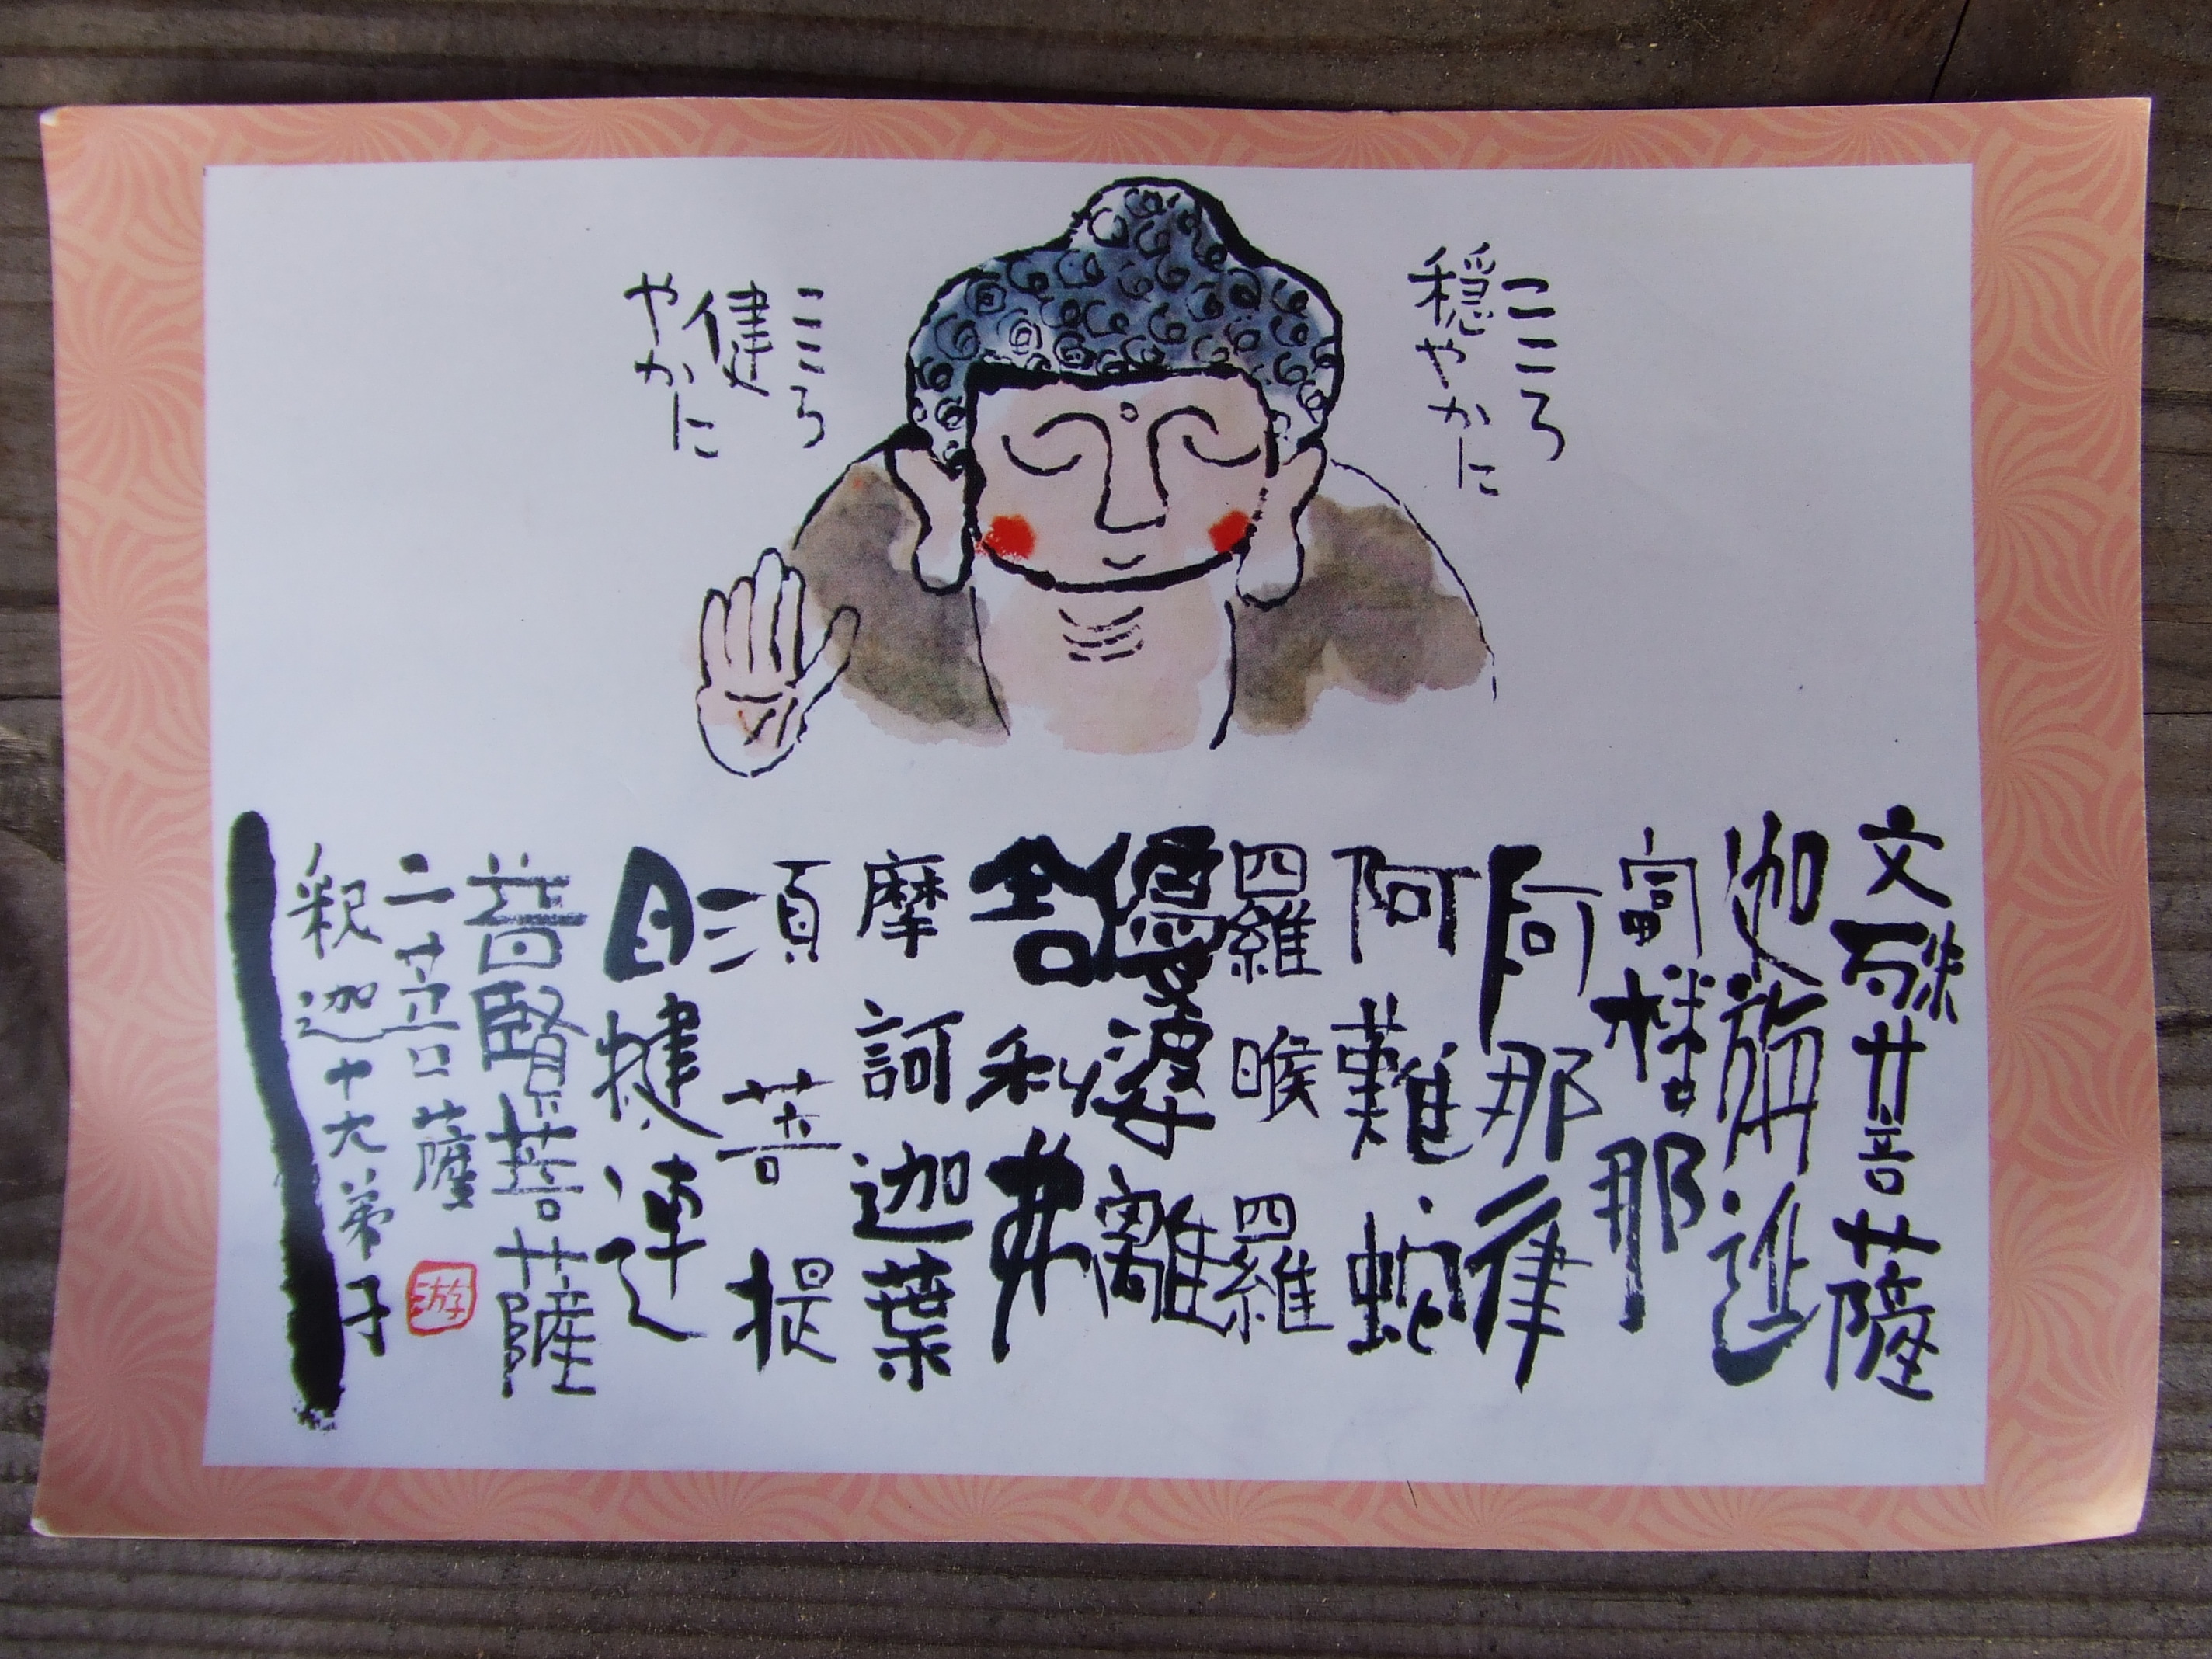 こころ
穏やかに
こころ
健
やかに
文殊菩薩
迦旃延
富楼那
阿那律
阿難蛇
羅睺羅
優婆離
舎利弗
摩訶迦葉
須菩提
目犍連
普賢菩薩
二菩薩
釈迦十大弟子
游